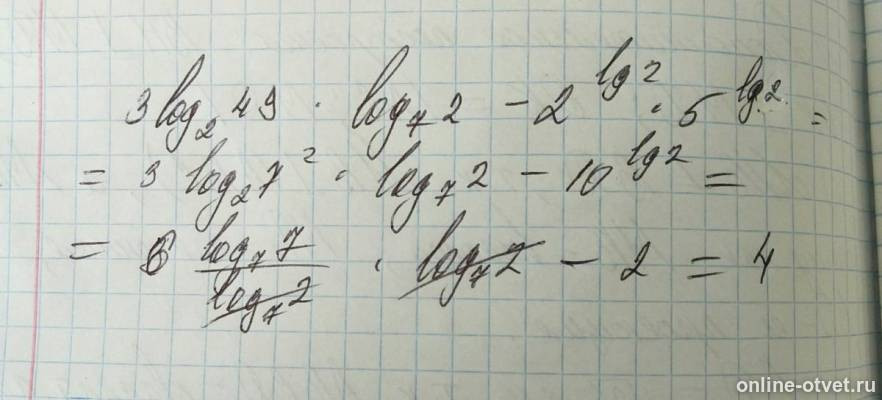 3 log₂ 49 · log₇ 2 − 2^(lg 2) · 5^(lg 2) =
= 3 log₂ 7² · log₇ 2 − 10^(lg 2) =
= 6 (log₇ 7)/(log₇ 2) · log₇ 2 − 2 = 4
online-otvet.ru